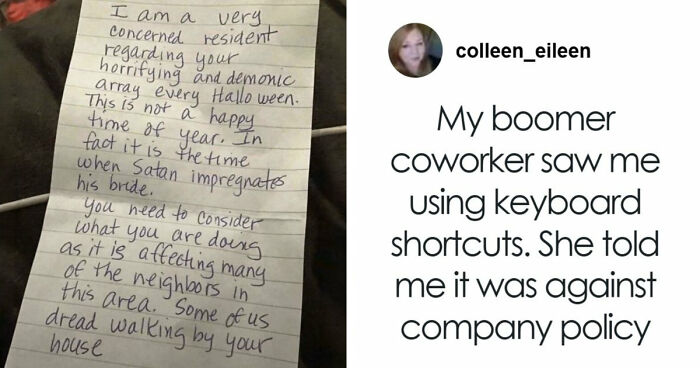 I am a very
concerned resident
regarding your
horrifying and demonic
array every Halloween.
This is not a happy
time of year. In
fact it is the time
when Satan impregnates
his bride.
You need to consider
what you are doing
as it is affecting many
of the neighbors in
this area. Some of us
dread walking by your
house
colleen_eileen
My boomer
coworker saw me
using keyboard
shortcuts. She told
me it was against
company policy